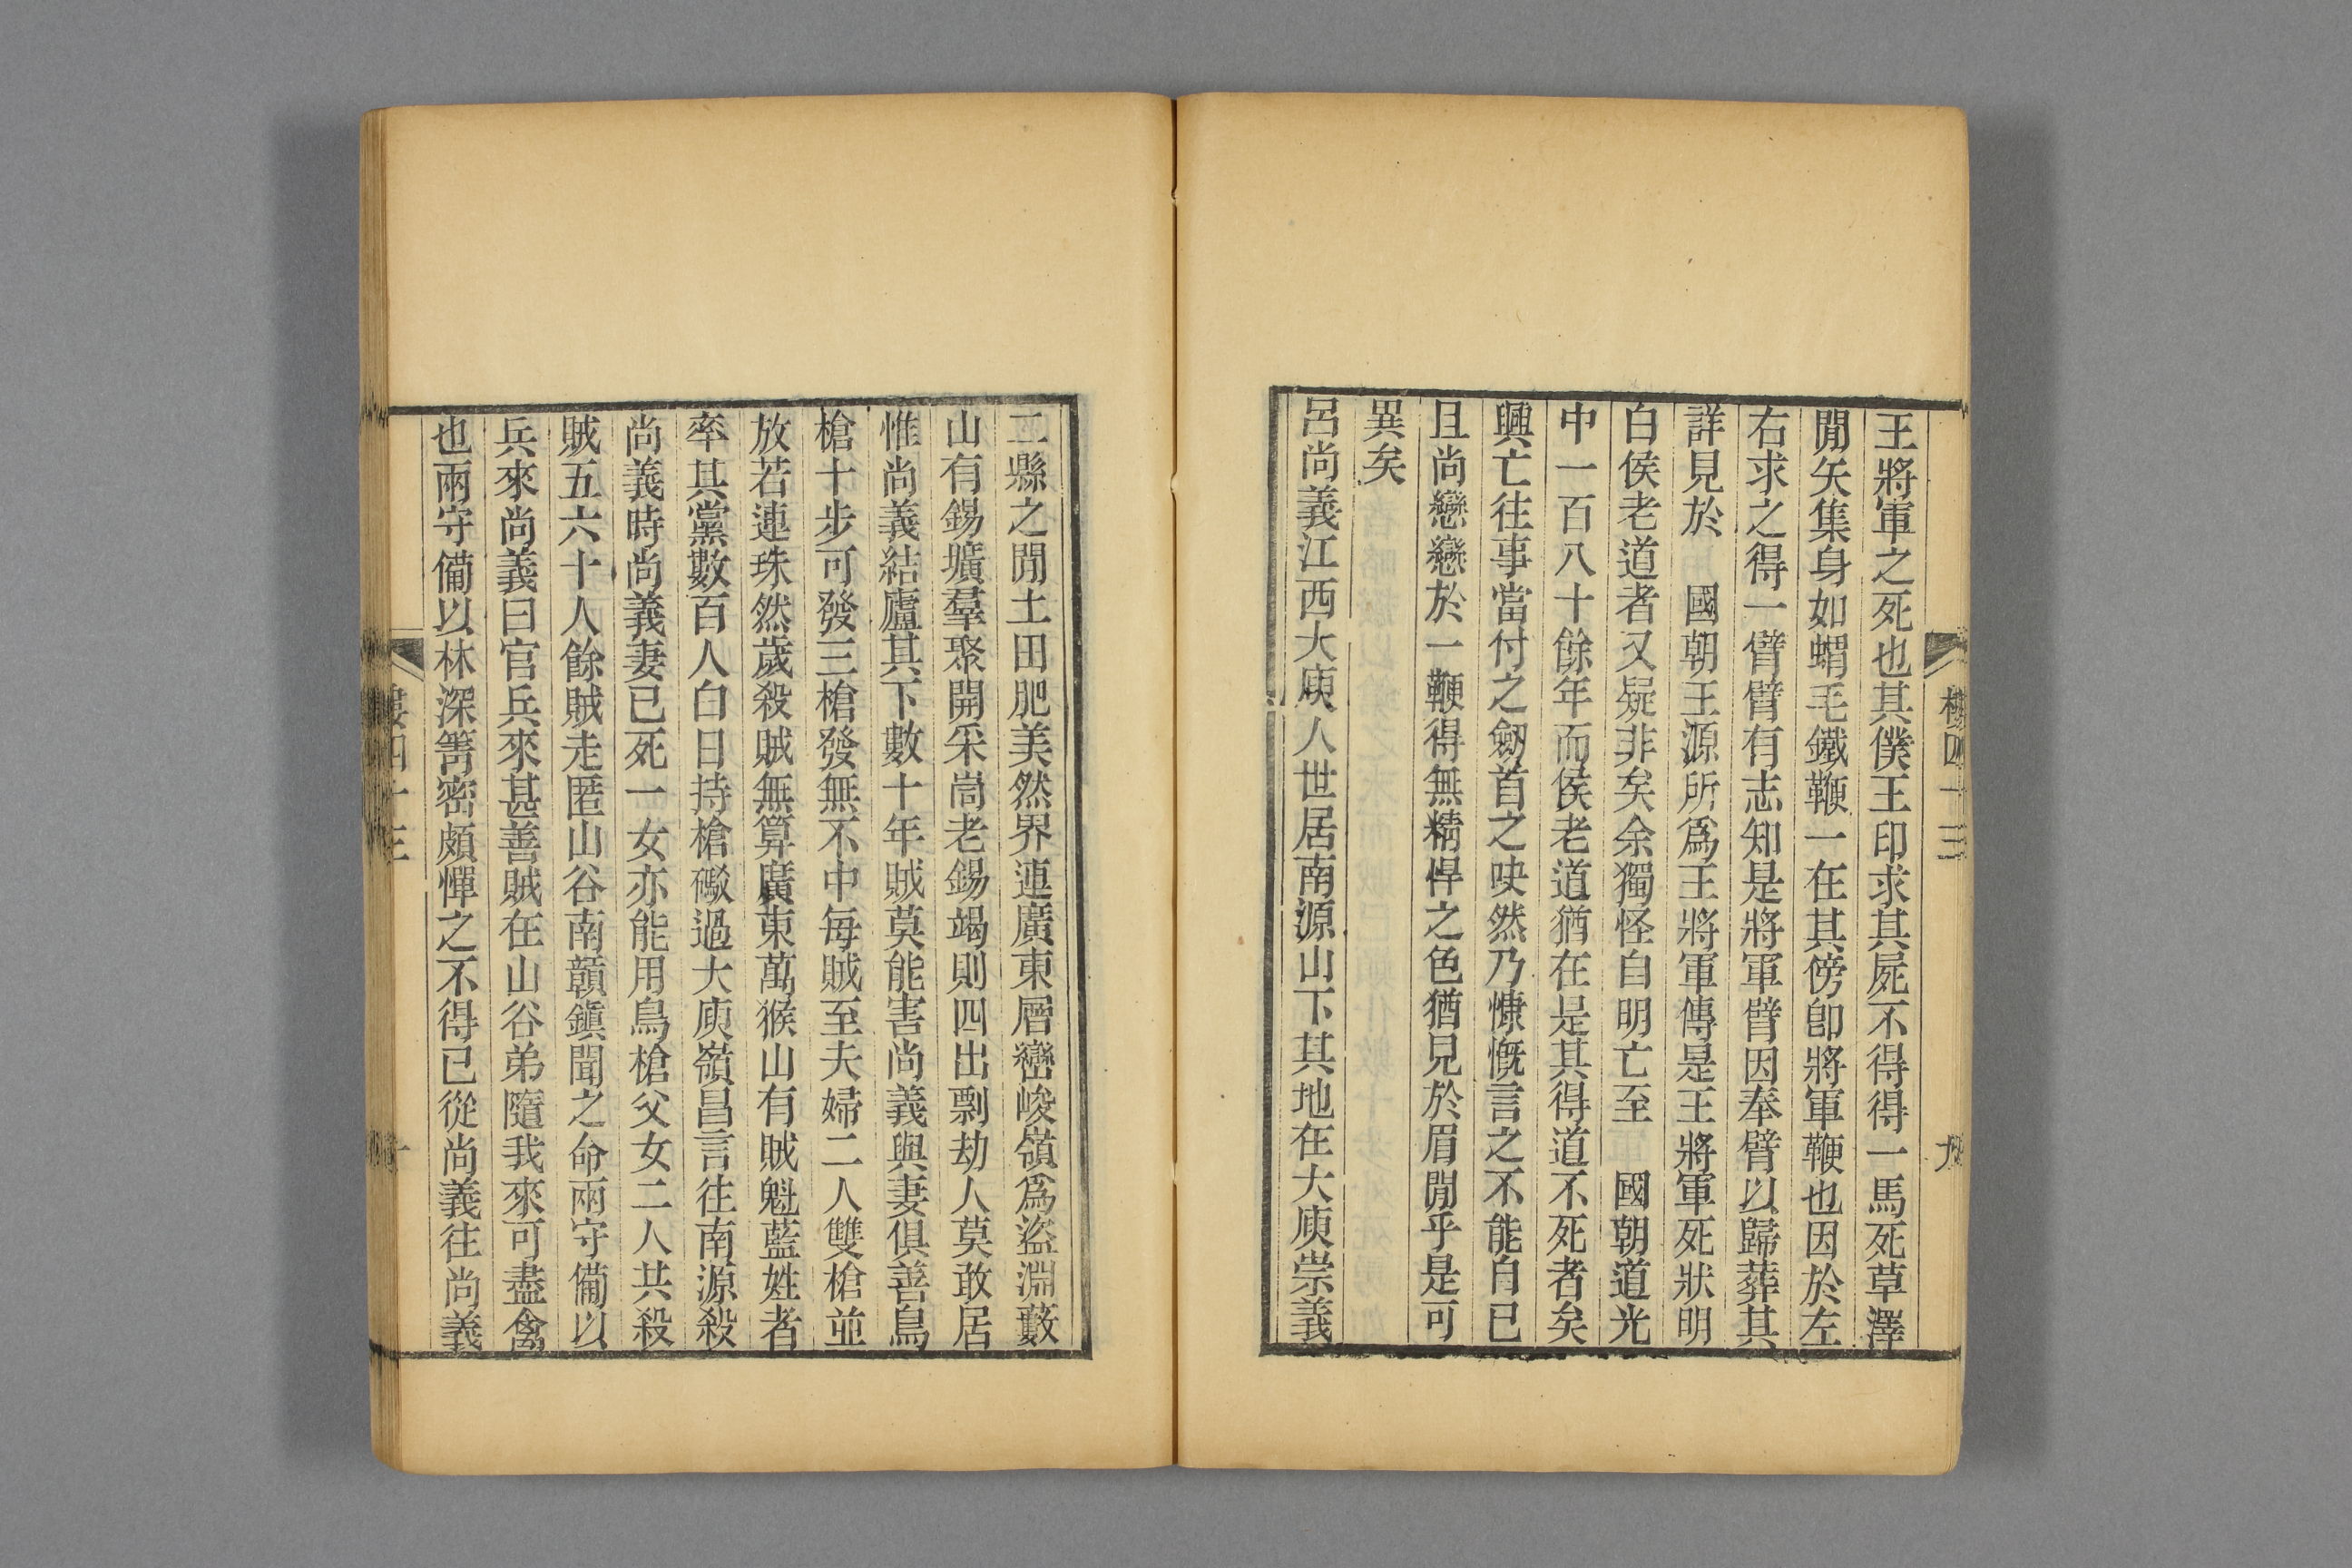 王將軍之死也其僕王印求其屍不得得一馬死草澤
閒矢集身如蝟毛鐵鞭一在其傍卽將軍鞭也因於左
右求之得一臂臂有志知是將軍臂因奉臂以歸葬其
詳見於　國朝王源所爲王將軍傳是王將軍死狀明
白侯老道者又疑非矣余獨怪自明亡至　國朝道光
中一百八十餘年而侯老道猶在是其得道不死者矣
興亡往事當付之劒首之吷然乃慷慨言之不能自已
且尙戀戀於一鞭得無精悍之色猶見於眉閒乎是可
異矣
呂尙義江西大庾人世居南源山下其地在大庾崇義
二縣之閒土田肥美然界連廣東層巒峻嶺爲盜淵藪
山有錫壙羣聚開采峝老錫竭則四出剽劫人莫敢居
惟尙義結廬其下數十年賊莫能害尙義與妻俱善鳥
槍十步可發三槍發無不中每賊至夫婦二人雙槍並
放若連珠然歲殺賊無算廣東萬猴山有賊魁藍姓者
率其黨數百人白日持槍礮過大庾嶺昌言往南源殺
尙義時尙義妻已死一女亦能用鳥槍父女二人共殺
賊五六十人餘賊走匿山谷南贛鎭聞之命兩守備以
兵來尙義曰官兵來甚善賊在山谷弟隨我來可盡禽
也兩守備以林深箐密頗憚之不得已從尙義往尙義
樓四十三
九